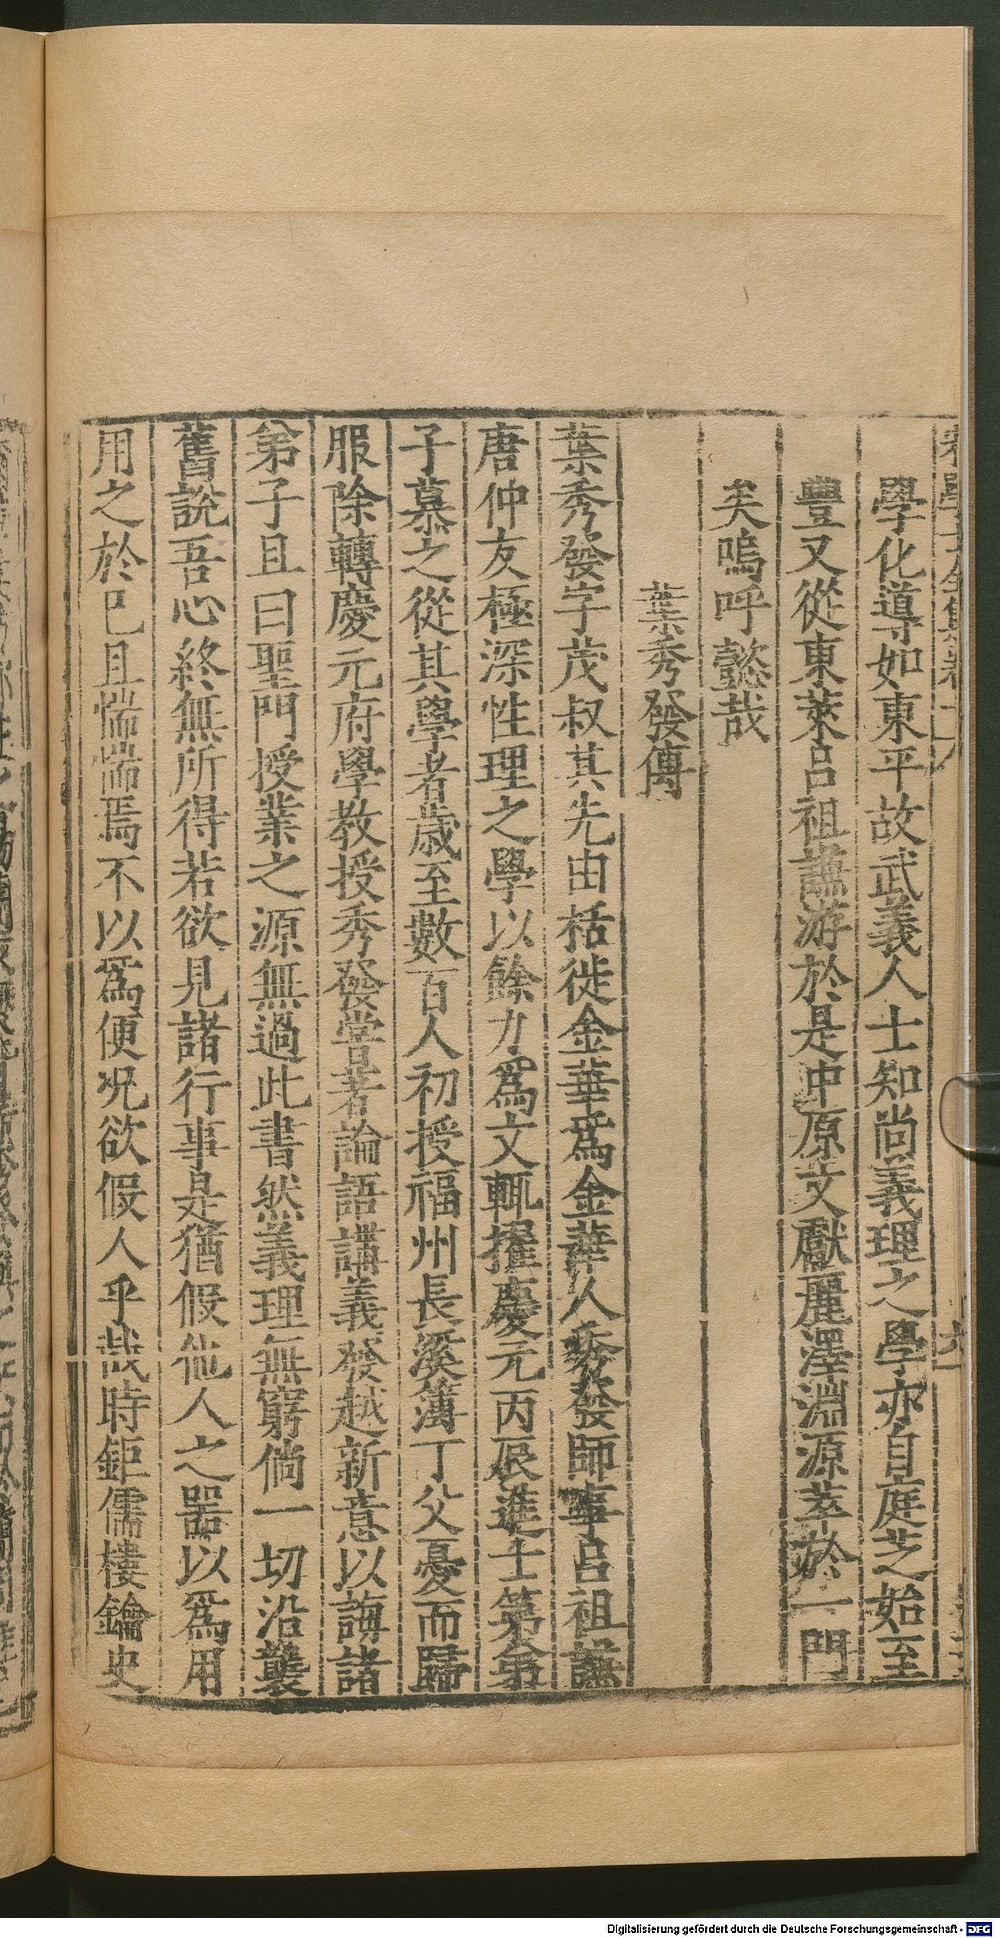 學化導如東平故武義人士知尚義理之學亦自庭芝始至
豐又從東萊呂祖謙游於是中原文獻麗澤淵源萃於一門
矣嗚呼懿哉
葉秀發傳
葉秀發字茂叔其先由括徙金華爲金華人秀發師事呂祖謙
唐仲友極深性理之學以餘力爲文輒擢慶元丙辰進士第弟
子慕之從其學者歲至數百人初授福州長溪簿丁父憂而歸
服除轉慶元府學教授秀發嘗著論語講義發越新意以誨諸
弟子且曰聖門授業之源無過此書然義理無窮倘一切沿襲
舊說吾心終無所得若欲見諸行事是猶假他人之器以爲用
用之於巳且惴惴焉不以爲便况欲假人乎哉時鉅儒樓鑰史
Digitalisierung gefördert durch die Deutsche Forschungsgemeinschaft - DFG